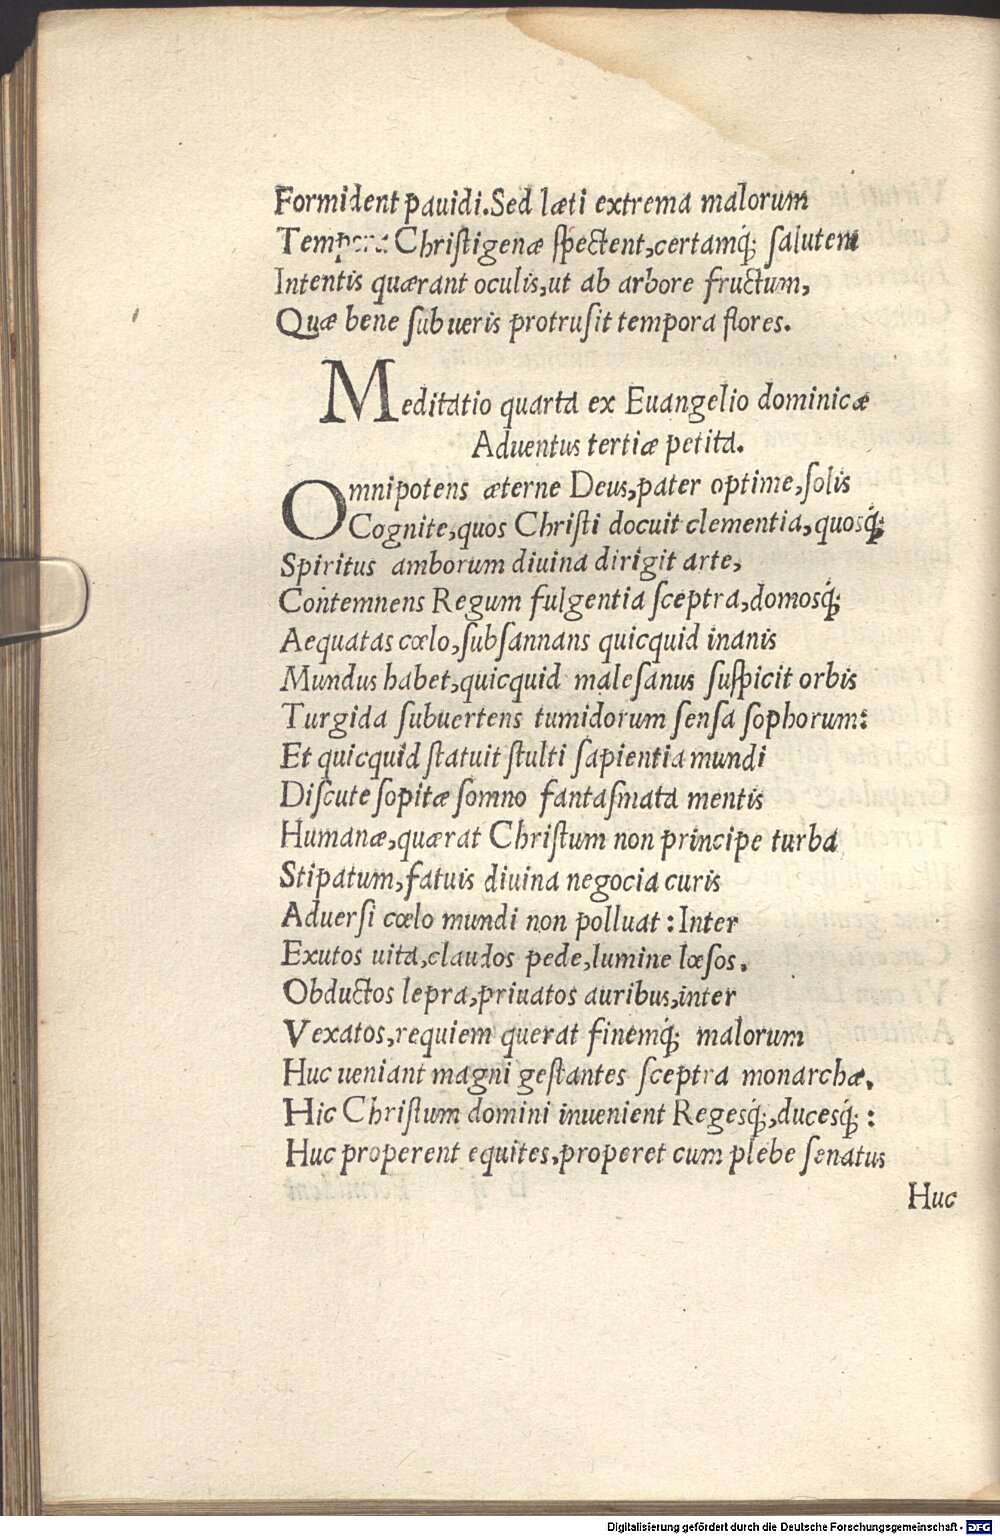 Formident pauidi. Sed læti extrema malorum
Tempora Chriſtigenæ ſpectent, certamq́; ſalutem
Intentis quærant oculis, ut ab arbore fructum,
Quæ bene ſub ueris protruſit tempora flores.
Meditatio quarta ex Euangelio dominicæ
Aduentus tertiæ petita.
Omnipotens æterne Deus, pater optime, ſolis
Cognite, quos Chriſti docuit clementia, quosq́;
Spiritus amborum diuina dirigit arte,
Contemnens Regum fulgentia ſceptra, domosq́;
Aequatas cœlo, ſubſannans quicquid inanis
Mundus habet, quicquid maleſanus ſuſpicit orbis
Turgida ſubuertens tumidorum ſenſa ſophorum:
Et quicquid ſtatuit ſtulti ſapientia mundi
Diſcute ſopitæ ſomno fantaſmata mentis
Humanæ, quærat Chriſtum non principe turba
Stipatum, fatuis diuina negocia curis
Aduerſi cœlo mundi non polluat: Inter
Exutos uita, claudos pede, lumine læſos,
Obductos lepra, priuatos auribus, inter
Vexatos, requiem querat finemq́; malorum
Huc ueniant magni geſtantes ſceptra monarchæ,
Hic Chriſtum domini inuenient Regesq́;, ducesq́;:
Huc properent equites, properet cum plebe ſenatus
Huc
Digitalisierung gefördert durch die Deutsche Forschungsgemeinschaft - DFG